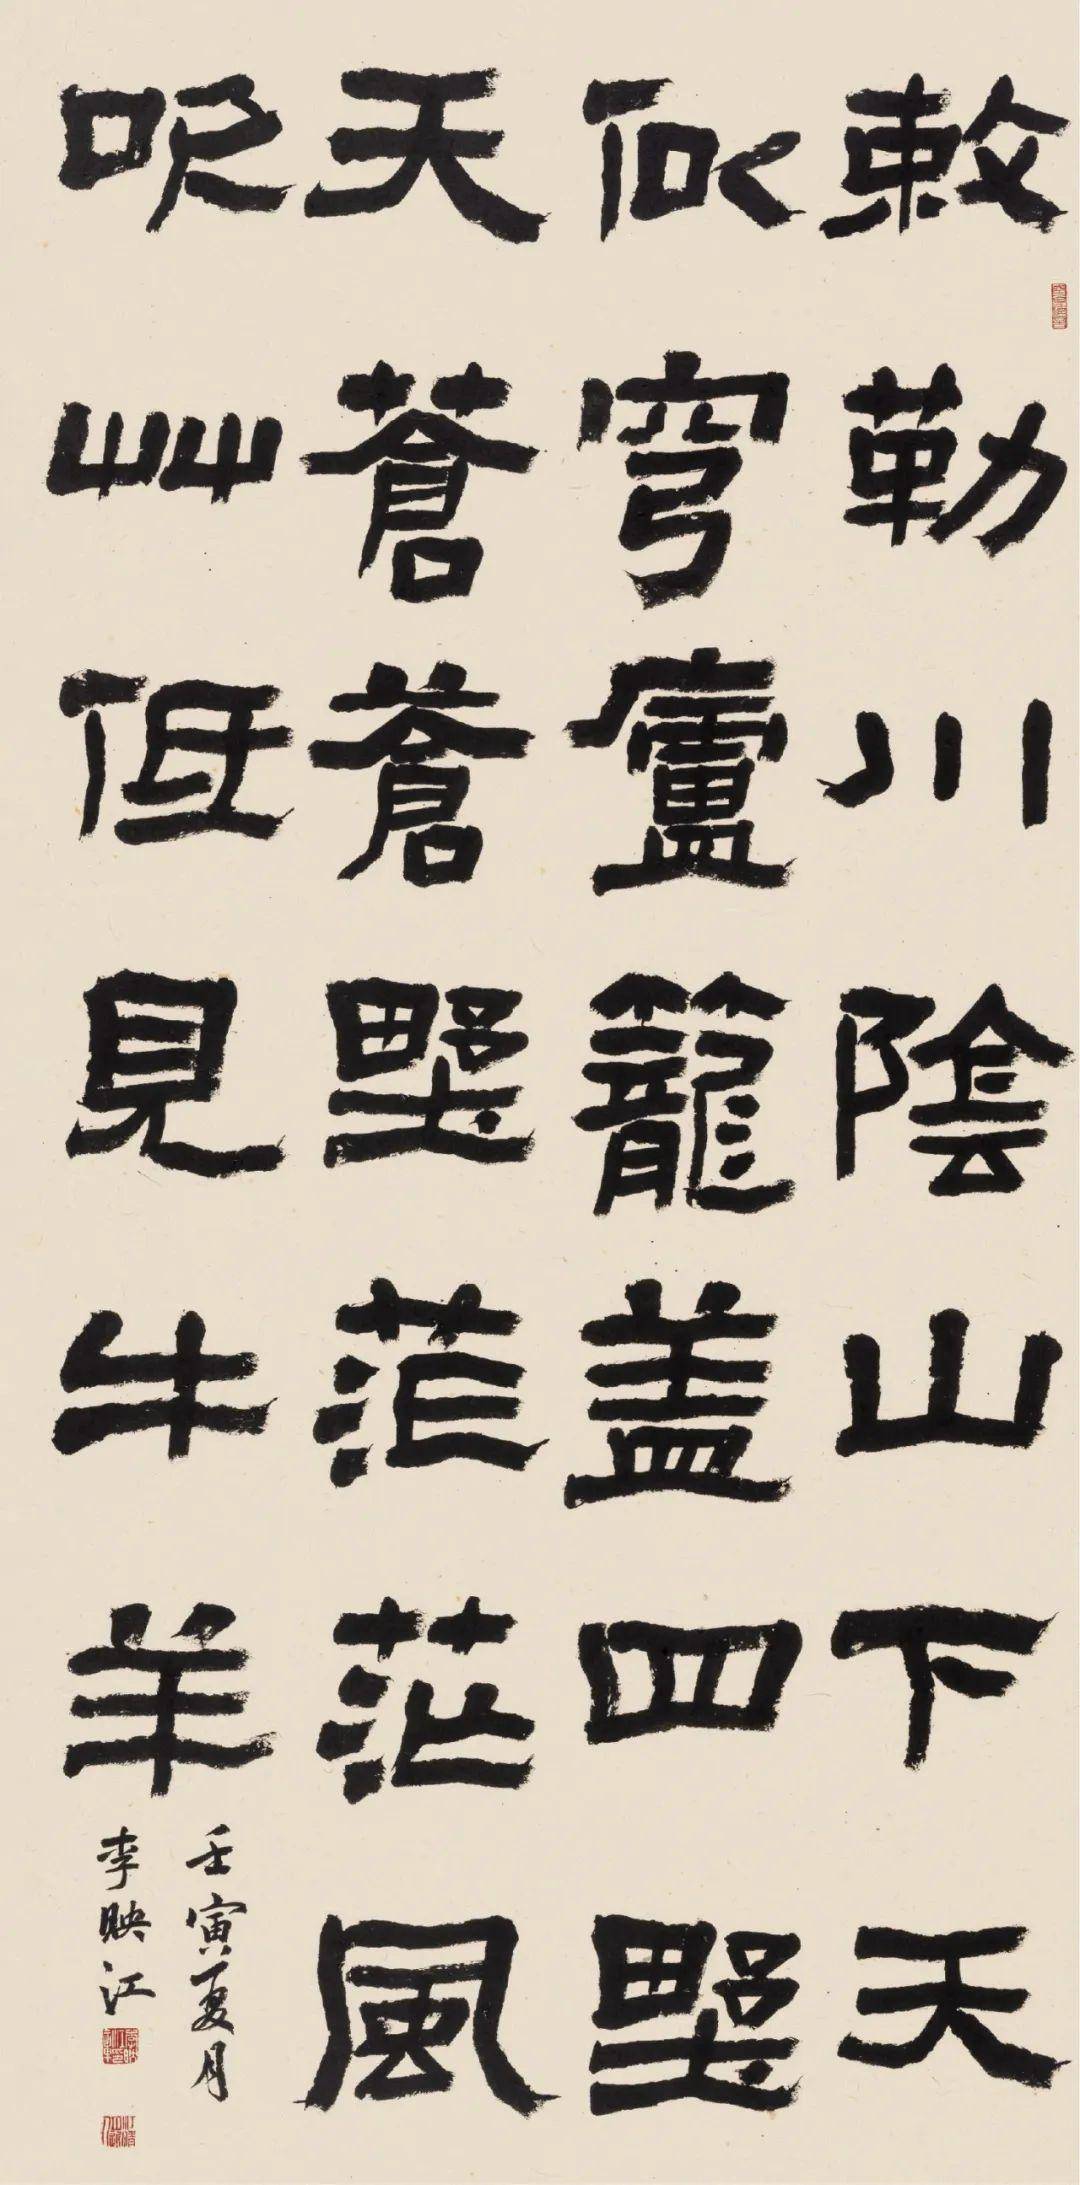 敕勒川陰山下天
似穹廬籠蓋四野
天蒼蒼野茫茫風
吹艸低見牛羊
壬寅夏月
李映江